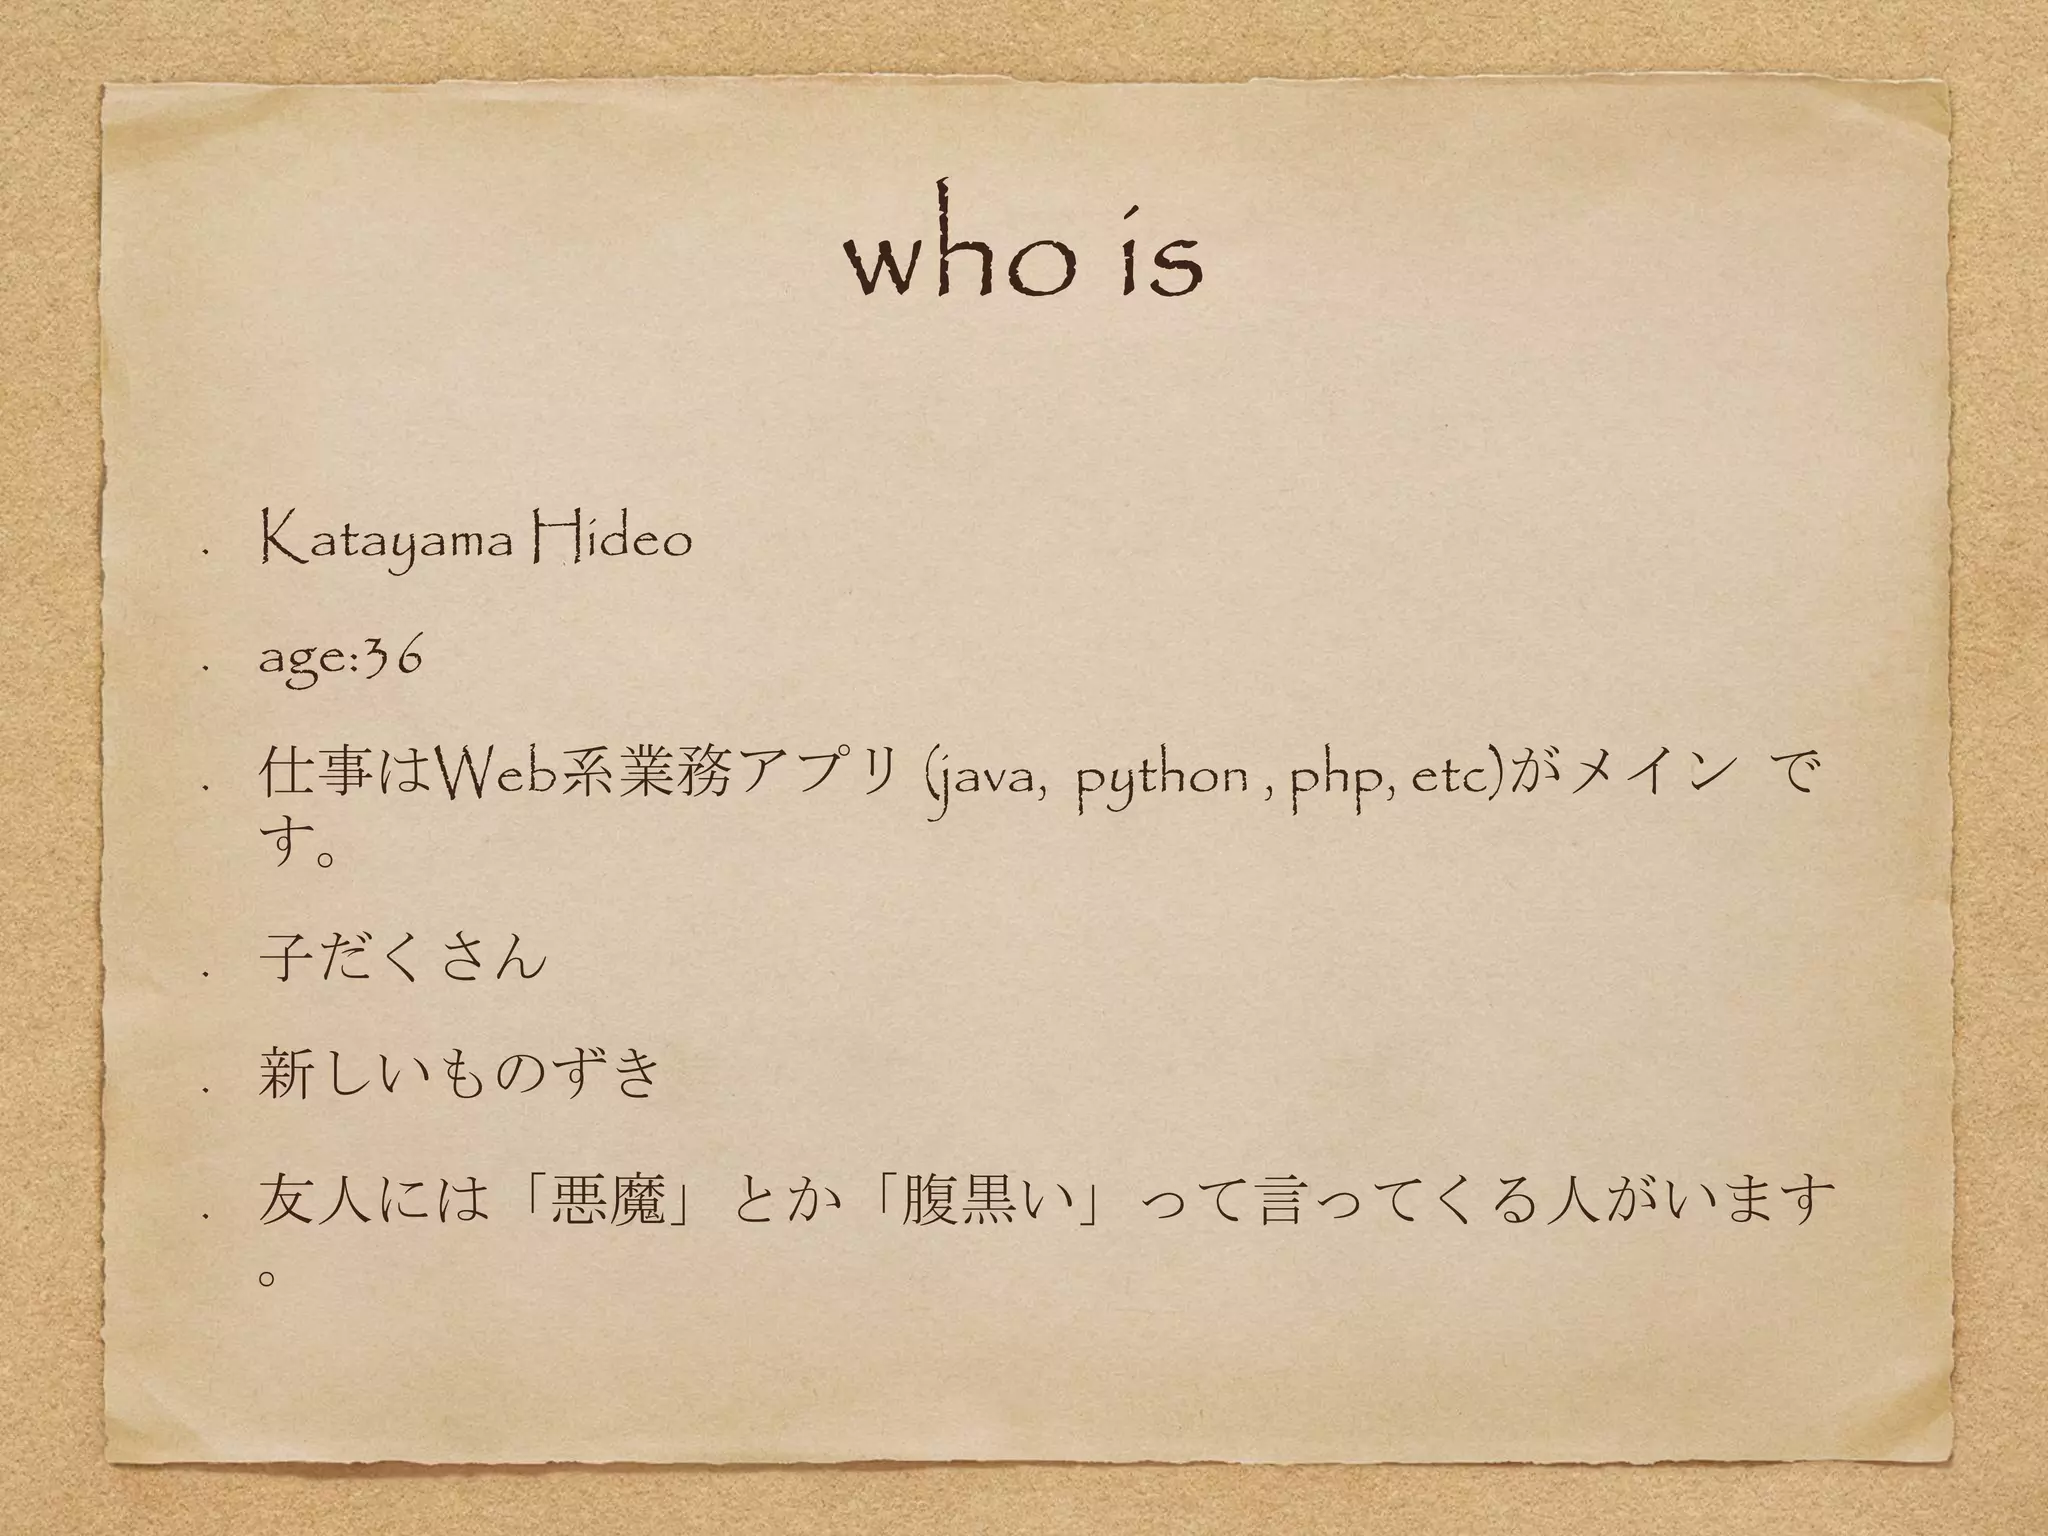 who is
Katayama Hideo
age:36
仕事はWeb系業務アプリ (java, python , php, etc)がメイン で
す。
子だくさん
新しいものずき
友人には「悪魔」とか「腹黒い」って言ってくる人がいます
。